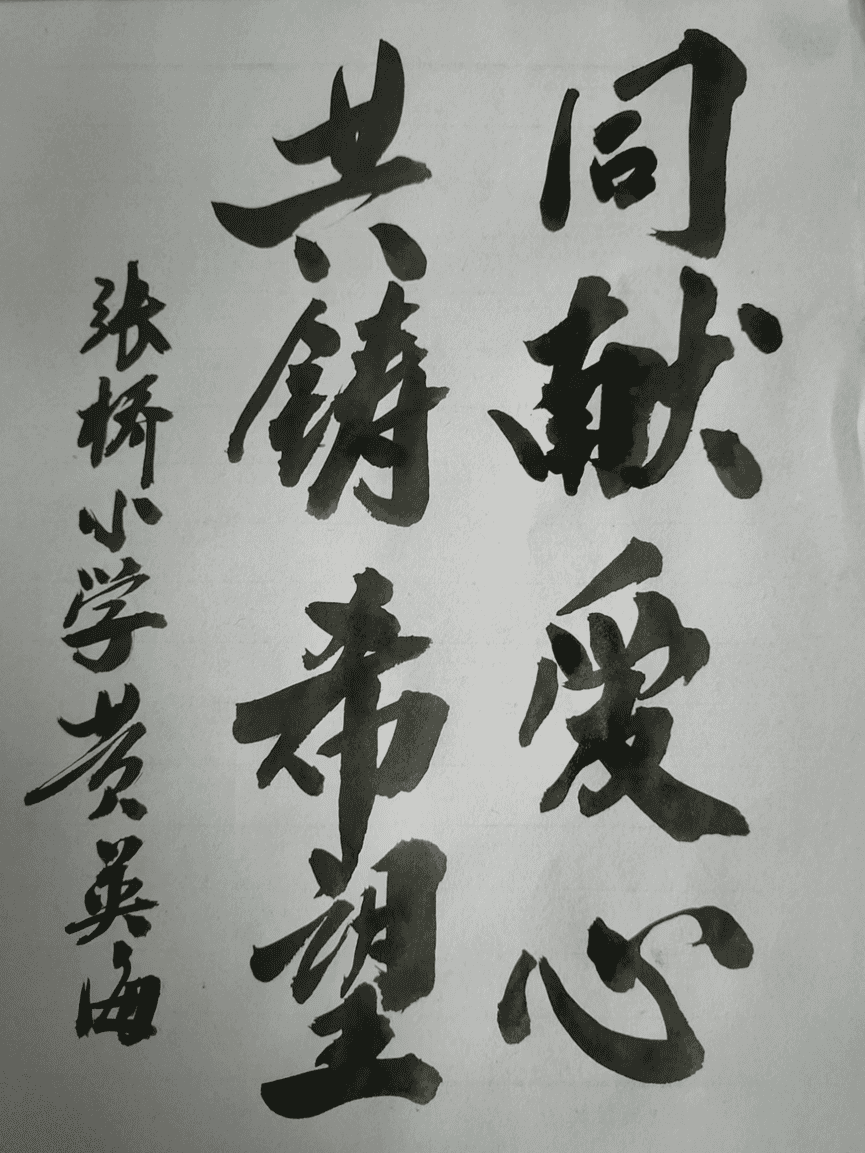 同献爱心
共铸希望
张桥小学黄英海